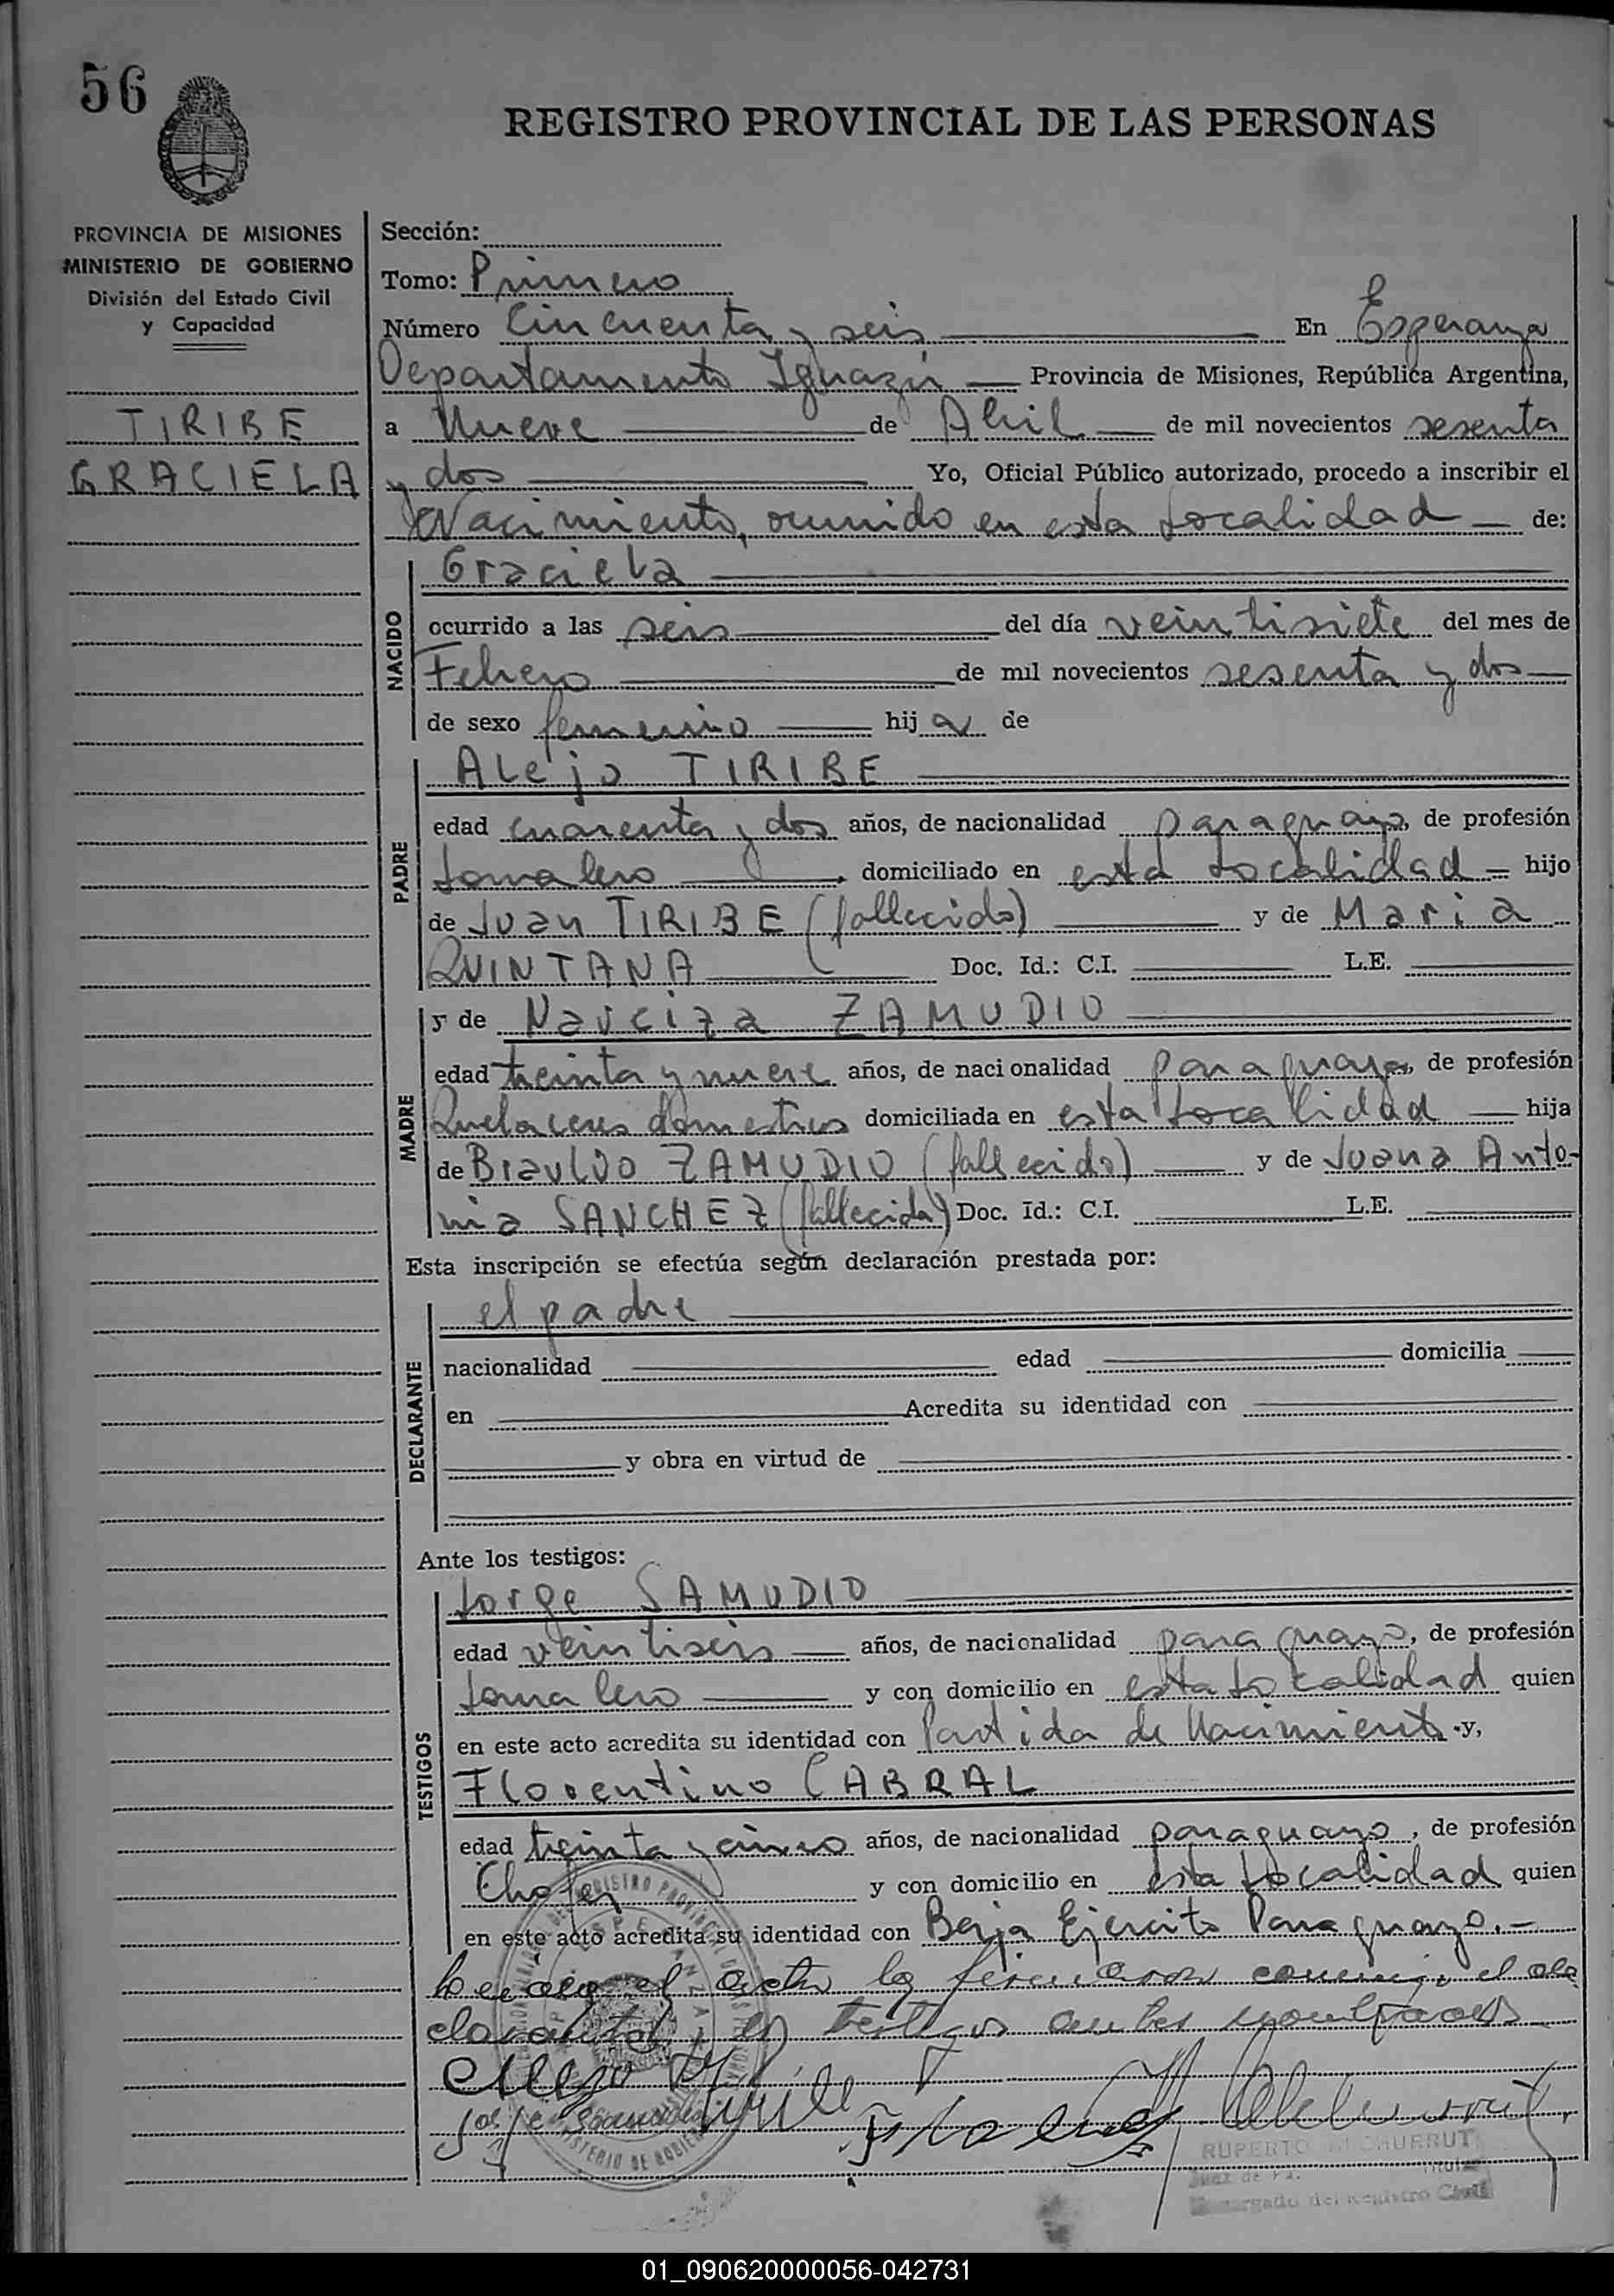 56
REGISTRO PROVINCIAL DE LAS PERSONAS
PROVINCIA DE MISIONES
MINISTERIO DE GOBIERNO
División del Estado Civil
y Capacidad
TIRIBE
GRACIELA
Sección:
Tomo: Primero
Número Cincuenta y seis En Esperanza
Departamento Iguazú Provincia de Misiones, República Argentina,
a Nueve de Abril de mil novecientos sesenta
y dos Yo, Oficial Público autorizado, procedo a inscribir el
Nacimiento, ocurrido en esta Localidad de:
NACIDO
Graciela
ocurrido a las seis del día veintisiete del mes de
Febrero de mil novecientos sesenta y dos
de sexo femenino hija de
PADRE
Alejo TIRIBE
edad cuarenta y dos años, de nacionalidad paraguayo, de profesión
Jornalero, domiciliado en esta Localidad hijo
de Juan TIRIBE (fallecido) y de Maria
QUINTANA Doc. Id.: C.I. L.E.
MADRE
y de Narciza ZAMUDIO
edad treinta y nueve años, de nacionalidad paraguaya, de profesión
Quehaceres domesticos domiciliada en esta Localidad hija
de Braulio ZAMUDIO (fallecido) y de Juana Anto-
nia SANCHEZ (fallecida) Doc. Id.: C.I. L.E.
Esta inscripción se efectúa según declaración prestada por:
DECLARANTE
el padre
nacionalidad edad domicilia
en Acredita su identidad con
y obra en virtud de
Ante los testigos:
TESTIGOS
Jorge SAMUDIO
edad veintiseis años, de nacionalidad paraguayo, de profesión
Jornalero y con domicilio en esta Localidad quien
en este acto acredita su identidad con Partida de Nacimiento y,
Florentino CABRAL
edad treinta y cinco años, de nacionalidad paraguayo, de profesión
Chofer y con domicilio en esta Localidad quien
en este acto acredita su identidad con Baja Ejercito Paraguayo.-
el acta la firmaron conmigo el de
clarante y los testigos antes nombrados
Alejo Tiribe
Jorge Samudio
RUPERTO
Juez de Paz Titular
Encargado del Registro Civil
01_090620000056-042731